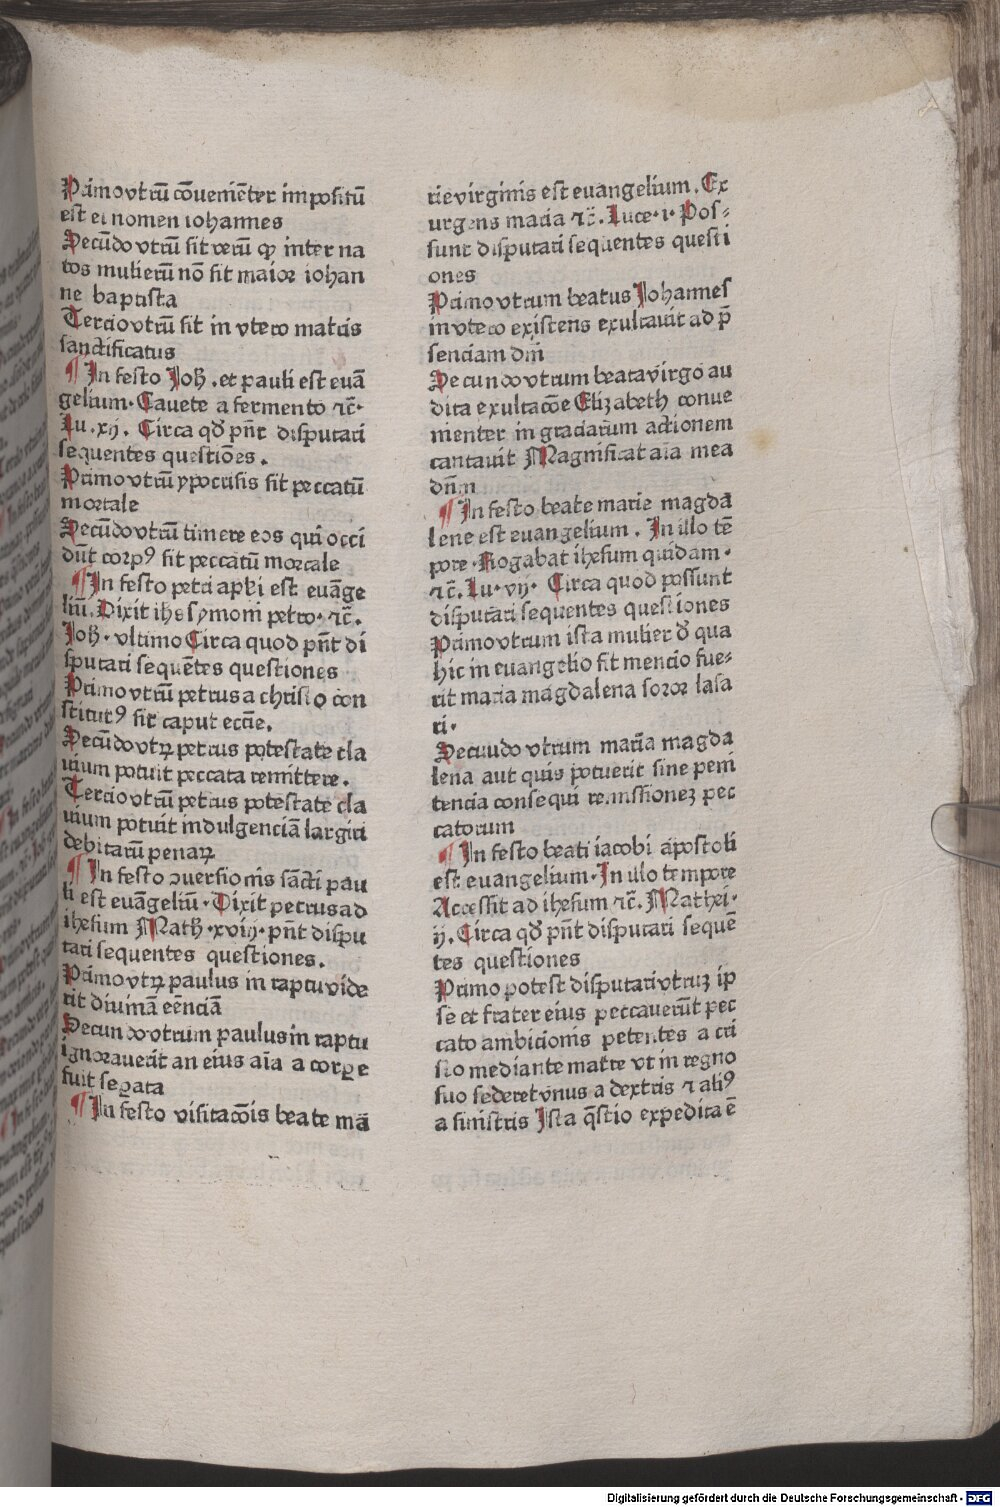 Primo vtrū cōueniēter impositū
est ei nomen iohannes
Secūdo vtrū sit verū ꝙ inter na
tos mulierū nō sit maior iohan
ne baptista
Tercio vtrū sit in vtero matris
sanctificatus
¶ In festo Joh̄. et pauli est euā
gelium. Cauete a fermento ⁊c̄.
Lu. xij. Circa qd̄ pn̄t disputari
sequentes questiōes.
Primo vtrū ypocrisis sit peccatū
mortale
Secūdo vtrū timere eos qui occi
dūt corpꝰ sit peccatū mortale
¶ In festo petri apl̄i est euāge
liū. Dixit ihs symoni petro. ⁊c̄.
Joh̄. vltimo Circa quod pn̄t di
sputari sequētes questiones
Primo vtrū petrus a christo con
stitutꝰ sit caput eccīe.
Secūdo vtꝝ petrus potestate cla
uium potuit peccata remittere.
Tercio vtrū petrus potestate cla
uium potuit indulgenciā largiri
debitarū penaꝝ
¶ In festo ꝯuersionis sācti pau
li est euāgeliū. Dixit petrus ad
ihesum Math̄. xviij. pn̄t dispu
tari sequentes questiones.
Primo vtꝝ paulus in raptu vide
rit diuinā eēnciā
Secundo vtrum paulus in raptu
ignorauerit an eius aīa a corꝑe
fuit seꝑata
¶ In festo visitacōis beate ma
rie virginis est euangelium. Ex
urgens maria ⁊c̄. Luce. i. Pos⸗
sunt disputari sequentes questi
ones
Primo vtrum beatus Johannes
in vtero existens exultauit ad p̄
senciam dn̄i
Secundo vtrum beata virgo au
dita exultacōe Elizabeth conue
nienter in graciarum actionem
cantauit Magnificat aīa mea
dn̄m
¶ In festo beate marie magda
lene est euangelium. In illo tē
pore. Rogabat ihesum quidam.
⁊c̄. Lu. vij. Circa quod possunt
disputari sequentes questiones
Primo vtrum ista mulier d̄ qua
hic in euangelio fit mencio fue⸗
rit maria magdalena soror lasa
ri.
Secuudo vtrum maria magda
lena aut quis potuerit sine peni
tencia consequi remissionez pec
catorum
¶ In festo beati iacobi apostoli
est euangelium. In illo tempore
Accessit ad ihesum ⁊c̄. Mathei.
ij. Circa qd̄ pn̄t disputari sequē
tes questiones
Primo potest disputari vtruz ip
se et frater eius peccauerūt pec
cato ambicionis petentes a cri
sto mediante matre vt in regno
suo sederet vnus a dextris ⁊ aliꝰ
a sinistris Ista q̄stio expedita ē
Digitalisierung gefördert durch die Deutsche Forschungsgemeinschaft - DFG